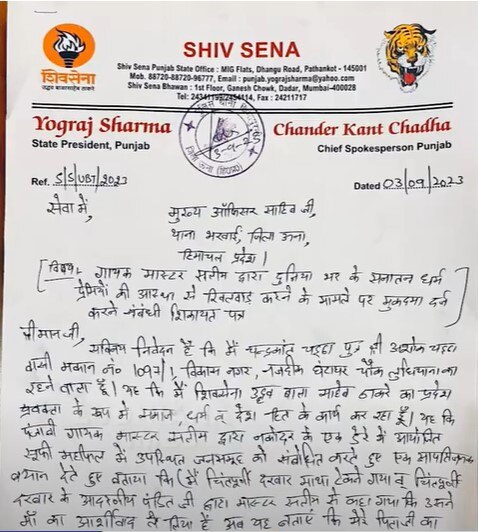 शिवसेना
उद्धव बाळासाहेब ठाकरे
SHIV SENA
Shiv Sena Punjab State Office : MIG Flats, Dhangu Road, Pathankot - 145001
Mob. 88720-88720-96777, Email : punjab.yograjsharma@yahoo.com
Shiv Sena Bhawan : 1st Floor, Ganesh Chowk, Dadar, Mumbai-400028
Tel: 24341199/2454114, Fax : 24211717
Yograj Sharma
State President, Punjab
Chander Kant Chadha
Chief Spokesperson Punjab
Ref. S/S/UBT/2023
Dated 03/09/2023
सेवा में,
मुख्य ऑफिसर साहिब जी,
थाना भरवाई, जिला ऊना,
हिमाचल प्रदेश।
विषय: गायक मास्टर सलीम द्वारा दुनिया भर के सनातन धर्म
प्रेमियों की आस्था से खिलवाड़ करने के मामले पर मुकदमा दर्ज
करने संबंधी शिकायत पत्र
श्रीमान जी,
सविनय निवेदन है कि मैं चन्द्रकांत चड्डा पुत्र श्री अशोक चड्डा
वासी मकान नं० 109, विकास नगर, नजदीक घंटाघर चौक लुधियाना का
रहने वाला हूँ। यह कि मैं शिवसेना उद्धव बाला साहेब ठाकरे का प्रदेश
प्रवक्ता के रूप में समाज, धर्म व देश हित के कार्य कर रहा हूँ। यह कि
पंजाबी गायक मास्टर सलीम द्वारा नकोदर के एक डेरे में आयोजित
सूफी महफिल में उपस्थित जनसमूह को संबोधित करते हुए एक आपत्तिजनक
बयान देते हुए बताया कि (मैं चिंतपूर्णी दरबार माथा टेकने गया व चिंतपूर्णी
दरबार के आदरणीय पंडित जी द्वारा मास्टर सलीम से कहा गया कि उसने
माँ का आर्शीवाद ले लिया है अब यह बताएं कि मेरे पिता जी का